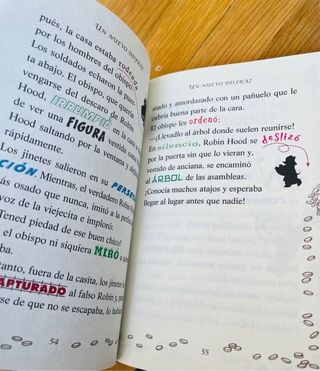 UN NUEVO DISFRAZ
pués, la casa estaba rodeada
por los hombres del obispo
Los soldados echaron la puer
ta abajo. El obispo, que quería
vengarse del descaro de Robin
Hood, IRRUMPIÓ en la casa
de ver una FIGURA vestida com
Hood saltando por la ventana y
rápidamente.
Los jinetes salieron en su PERSE
CIÓN. Mientras, el verdadero Robin
ás osado que nunca, imitó a la perf
voz de la viejecita e imploró:
Tened piedad de ese buen chico!
el obispo ni siquiera MIRÓ a
tanto, fuera de la casita, los jinetes
APTURADO al falso Robin y, para
se de que no se escapaba, lo había
54
UN NUEVO DISFRAZ
atado y amordazado con un pañuelo que le
cubría buena parte de la cara.
El obispo les ordenó:
—¡Llevadlo al árbol donde suelen reunirse!
En silencio, Robin Hood se deslizó
por la puerta sin que lo vieran y,
vestido de anciana, se encaminó
al ÁRBOL de las asambleas.
¡Conocía muchos atajos y esperaba
llegar al lugar antes que nadie!
55